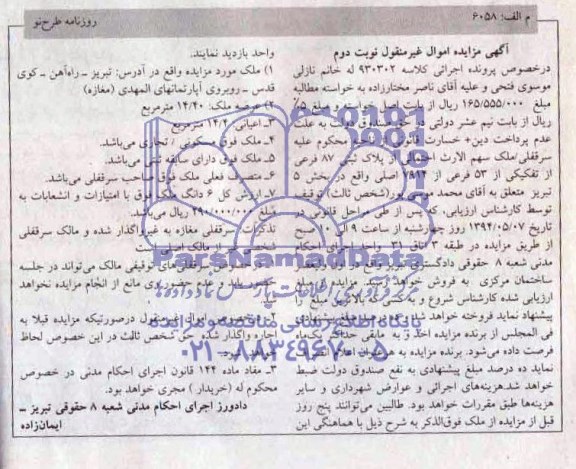 م الف: ۶۰۵۸
روزنامه طرح‌نو
آگهی مزایده اموال غیرمنقول نوبت دوم
درخصوص پرونده اجرائی کلاسه ۹۳۰۳۰۲ له خانم نازلی
موسوی فتحی و علیه آقای ناصر مختارزاده به خواسته مطالبه
مبلغ ۱۶۵/۵۵۵/۰۰۰ ریال از بابت اصل خواسته و مبلغ
ریال از بابت نیم عشر دولتی در حق صندوق دولت به علت
عدم پرداخت دین+ خسارت قانونی محکوم علیه
سرقفلی/ملک سهم الارث احتمالی از پلاک ثبتی ۸۷ فرعی
از تفکیکی از ۵۳ فرعی از اصلی واقع در بخش ۵
تبریز متعلق به آقای محمد موسی پور(شخص ثالث) توقیف
توسط کارشناس ارزیابی، که پس از طی مراحل قانونی در
تاریخ ۱۳۹۴/۰۵/۰۷ روز چهارشنبه از ساعت ۹ الی ۱۰ صبح
از طریق مزایده در طبقه ۳ اتاق ۳۱ واحد اجرای احکام
مدنی شعبه ۸ حقوقی دادگستری تبریز واقع در
ساختمان مرکزی به فروش خواهد رسید. مزایده از مبلغ
ارزیابی شده کارشناس شروع و به کسی که بالاترین مبلغ را
پیشنهاد نماید فروخته خواهد شد. ده درصد مبلغ پیشنهادی
فی المجلس از برنده مزایده اخذ و به مابقی حداکثر یک‌ماه
فرصت داده می‌شود. برنده مزایده به هر عنوان اعلام انصراف
نماید ده درصد مبلغ پیشنهادی به نفع صندوق دولت ضبط
خواهد شد.هزینه‌های اجرائی و عوارض شهرداری و سایر
هزینه‌ها طبق مقررات خواهد بود. طالبین می‌توانند پنج روز
قبل از مزایده از ملک فوق‌الذکر به شرح ذیل با هماهنگی این
واحد بازدید نمایند.
۱) ملک مورد مزایده واقع در آدرس: تبریز ـ راه‌آهن ـ کوی
قدس ـ روبروی آپارتمانهای المهدی (مغازه)
۲) عرصه ملک: ۱۴/۴۰ مترمربع
۳ـ اعیانی: ۱۴/۴۰ مترمربع
۴ـ ملک فوق مسکونی / تجاری می‌باشد.
۵ـ ملک فوق دارای سابقه ثبتی می‌باشد.
۶ـ متصرف فعلی ملک فوق صاحب سرقفلی می‌باشد.
۷ـ ارزش کل ۶ دانگ ملک فوق با امتیازات و انشعابات به
مبلغ ۲۹۰/۰۰۰/۰۰۰ ریال می‌باشد.
تذکرات: سرقفلی مغازه به غیر واگذار شده و مالک سرقفلی
شخصی غیر از مالک اصلی است
۱ـ در خصوص سرقفلی‌های توقیفی مالک می‌تواند در جلسه
حضور یابد و عدم حضور وی مانع از انجام مزایده نخواهد
شد.
۲ـ درخصوص اموال غیرمنقول درصورتیکه مزایده قبلا به
اجاره واگذار شده حق شخص ثالث در این خصوص لحاظ
خواهد شد.
۳ـ مفاد ماده ۱۴۴ قانون اجرای احکام مدنی در خصوص
محکوم له (خریدار ) مجری خواهد بود.
دادورز اجرای احکام مدنی شعبه ۸ حقوقی تبریز ـ
ایمان‌زاده
ParsNamadData
پایگاه اطلاع رسانی مناقصه و مزایده
۰۲۱-۸۸۳۴۹۶۷۰-۵